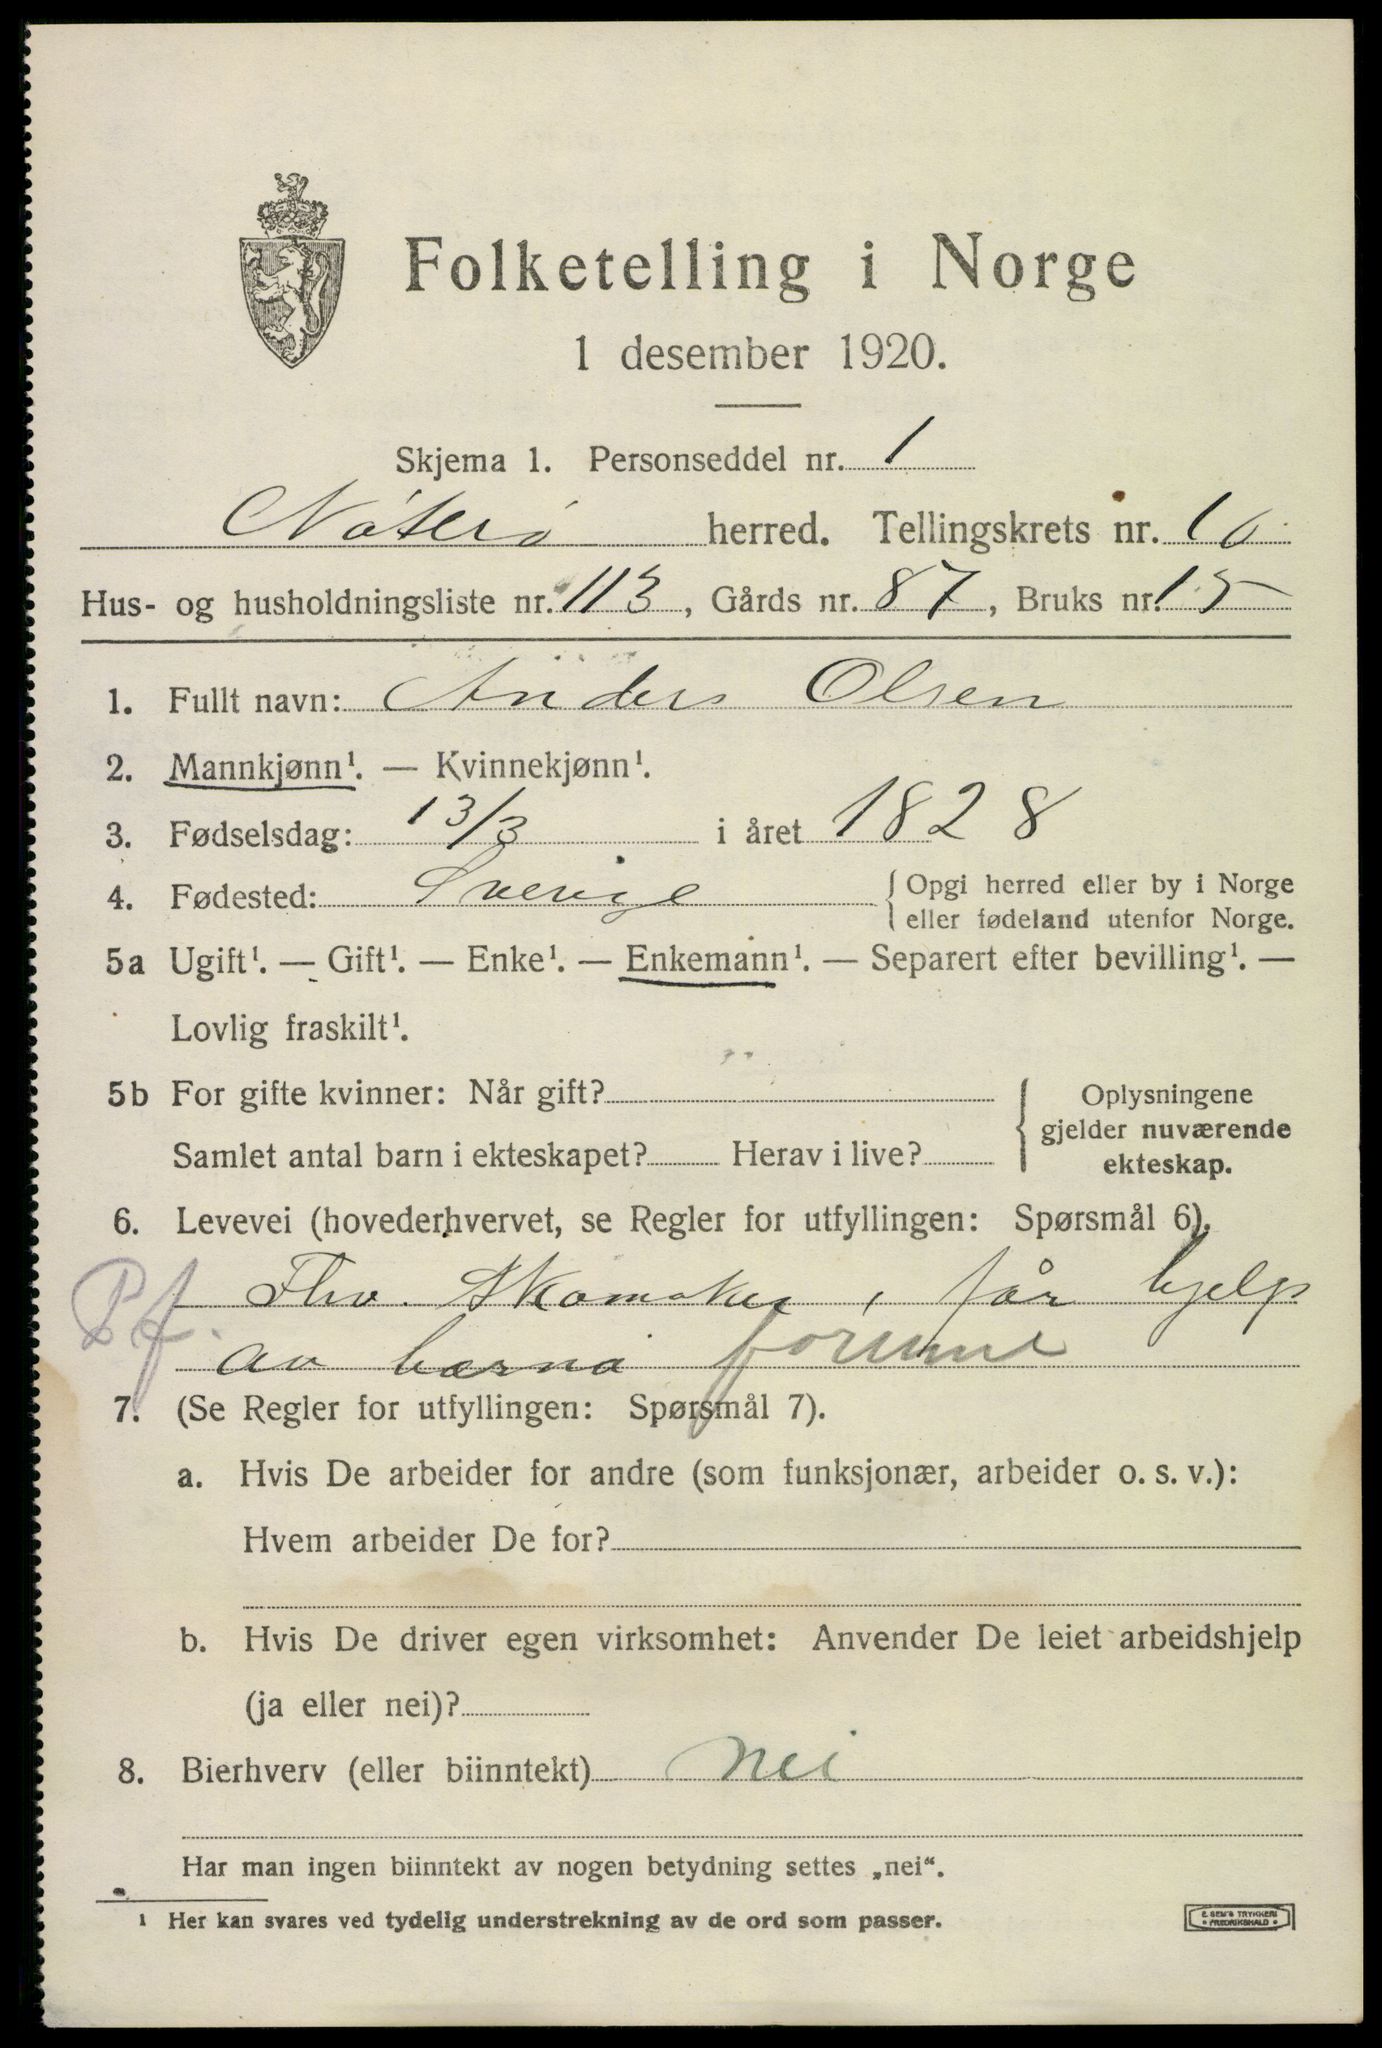 Folketelling i Norge
1 desember 1920.
Skjema 1. Personseddel nr. 1
Nøterø herred. Tellingskrets nr. 10
Hus- og husholdningsliste nr. 113, Gårds nr. 87, Bruks nr. 15
1. Fullt navn: Anders Olsen
2. Mannkjønn¹. — Kvinnekjønn¹.
3. Fødselsdag: 13/3 i året 1828
4. Fødested: Sverige { Opgi herred eller by i Norge
eller fødeland utenfor Norge.
5a Ugift¹. — Gift¹. — Enke¹. — Enkemann¹. — Separert efter bevilling¹. —
Lovlig fraskilt¹.
5b For gifte kvinner: Når gift?
Samlet antal barn i ekteskapet? Herav i live?
{ Oplysningene
gjelder nuværende
ekteskap.
6. Levevei (hovederhvervet, se Regler for utfyllingen: Spørsmål 6).
Pf. Fhv. Skomaker, får hjelp
av barna formue
7. (Se Regler for utfyllingen: Spørsmål 7).
a. Hvis De arbeider for andre (som funksjonær, arbeider o. s. v.):
Hvem arbeider De for?
b. Hvis De driver egen virksomhet: Anvender De leiet arbeidshjelp
(ja eller nei)?
8. Bierhverv (eller biinntekt) Nei
Har man ingen biinntekt av nogen betydning settes „nei“.
¹ Her kan svares ved tydelig understrekning av de ord som passer.
E SEM'S TRYKKERI
• FREDRIKSHALD •